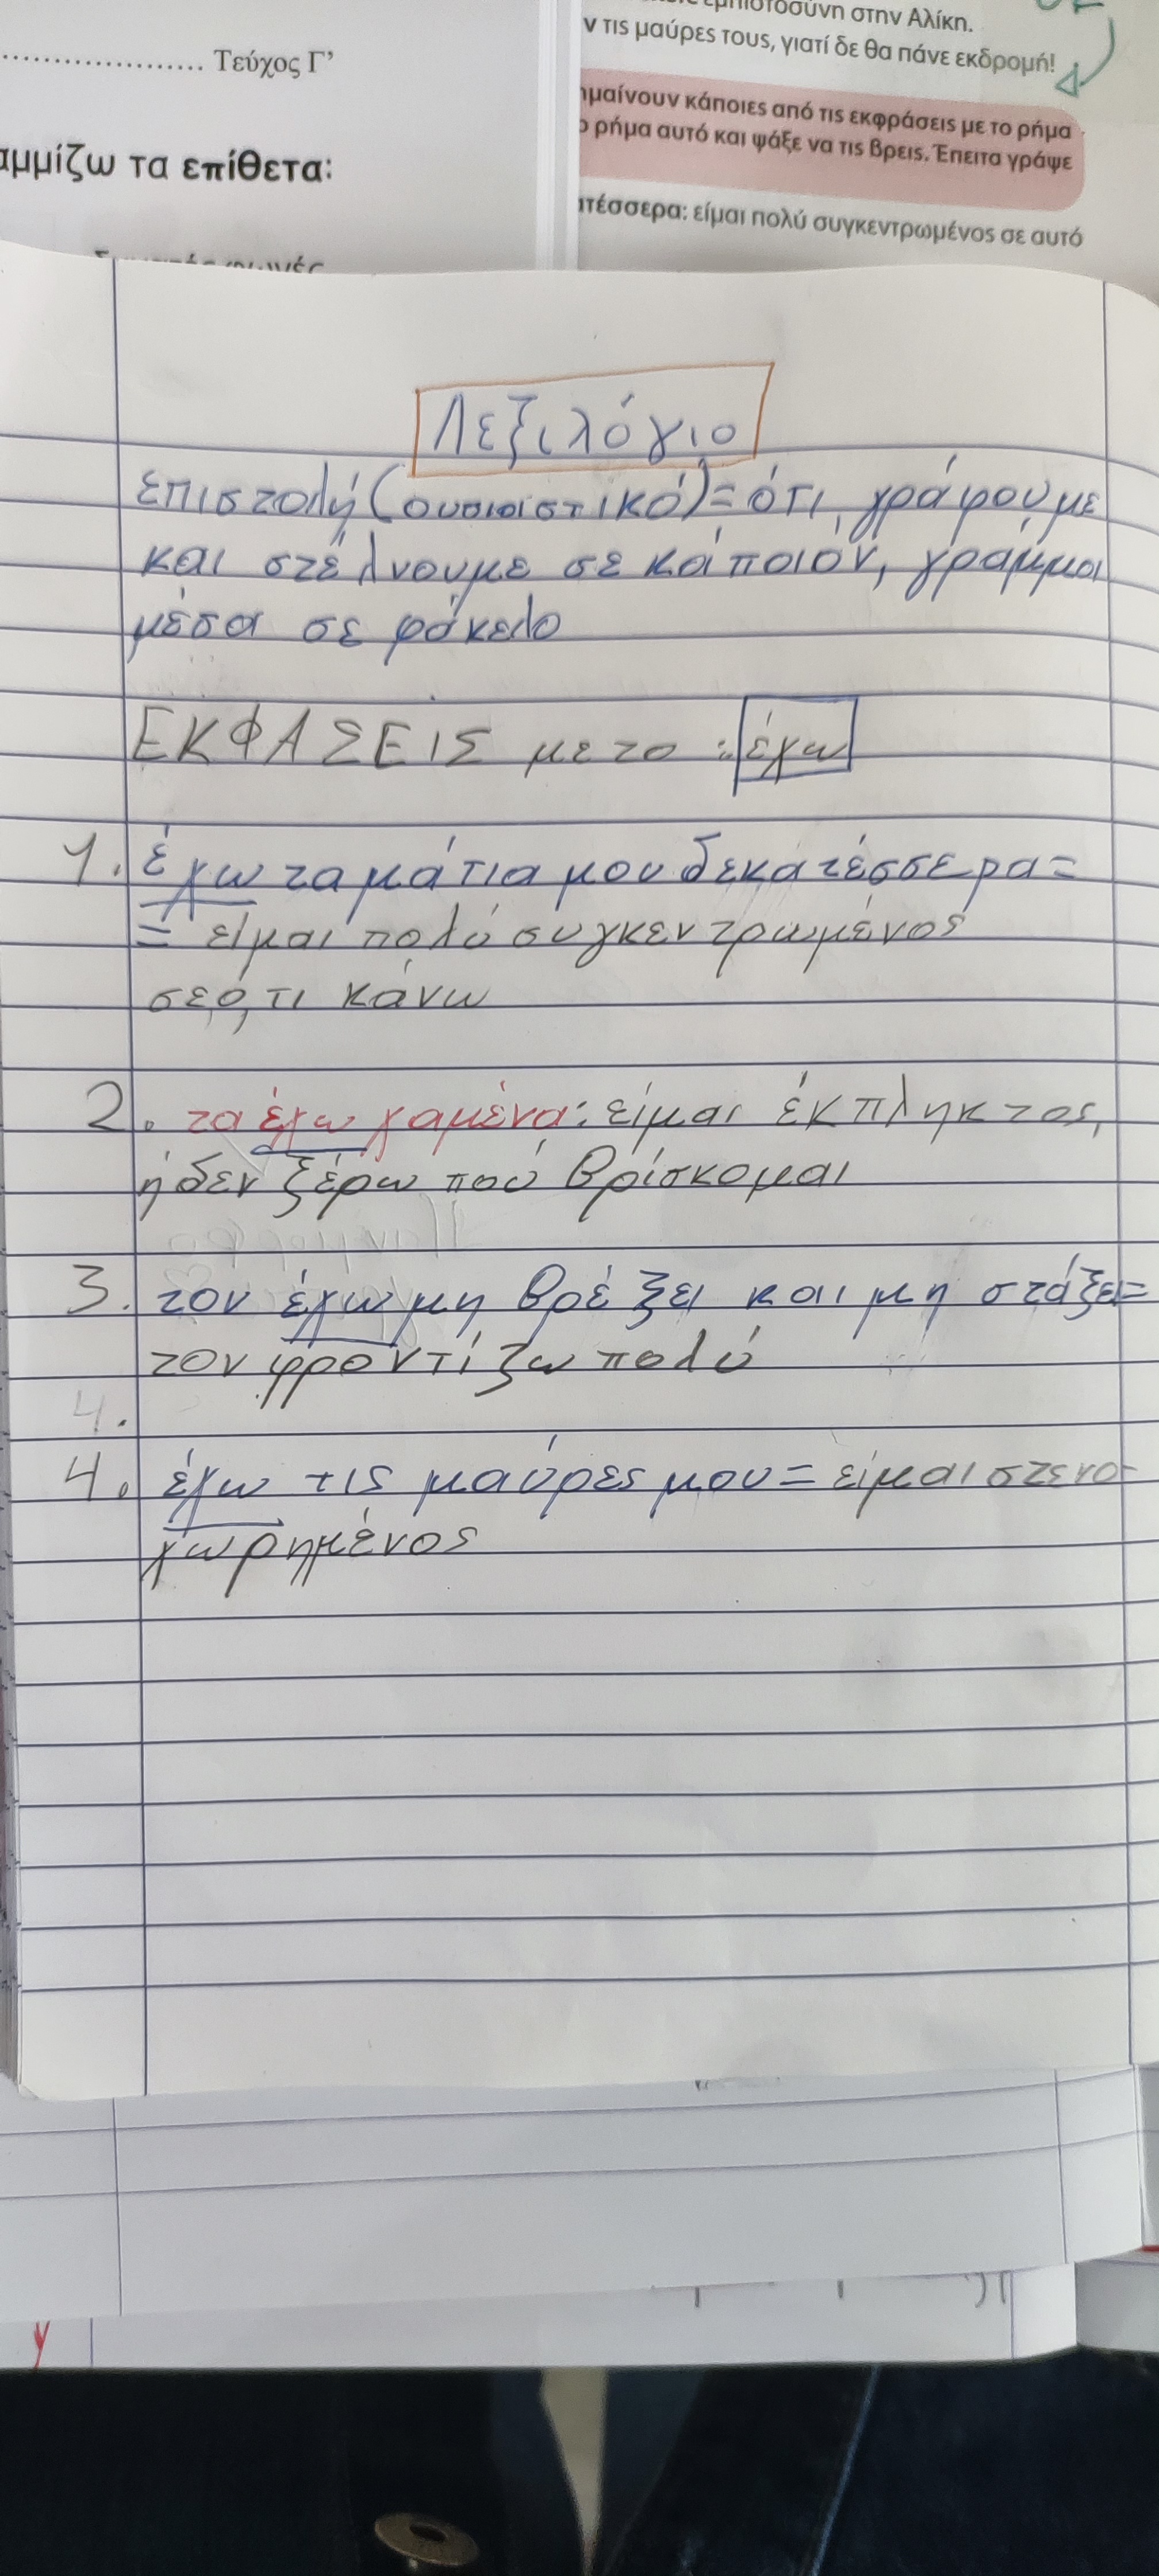 Τεύχος Γ'
τα επίθετα:
στην Αλίκη.
τις μαύρες τους, γιατί δε θα πάνε εκδρομή!
κάποιες από τις εκφράσεις με το ρήμα
ρήμα αυτό και ψάξε να τις βρεις. Έπειτα γράψε
είμαι πολύ συγκεντρωμένος σε αυτό
Λεξιλόγιο
επιστολή (ουσιαστικό) = ότι, γράφουμε
και στέλνουμε σε κάποιον, γράμμα
μέσα σε φάκελο
ΕΚΦΑΣΕΙΣ με το : έχω
1. έχω τα μάτια μου δεκατέσσερα =
= είμαι πολύ συγκεντρωμένος
σε ό,τι κάνω
2. τα έχω χαμένα: είμαι έκπληκτος,
ή δεν ξέρω πού βρίσκομαι
3. τον έχω μη βρέξει και μη στάξει =
τον φροντίζω πολύ
4.
4. έχω τις μαύρες μου = είμαι στενο-
χωρημένος